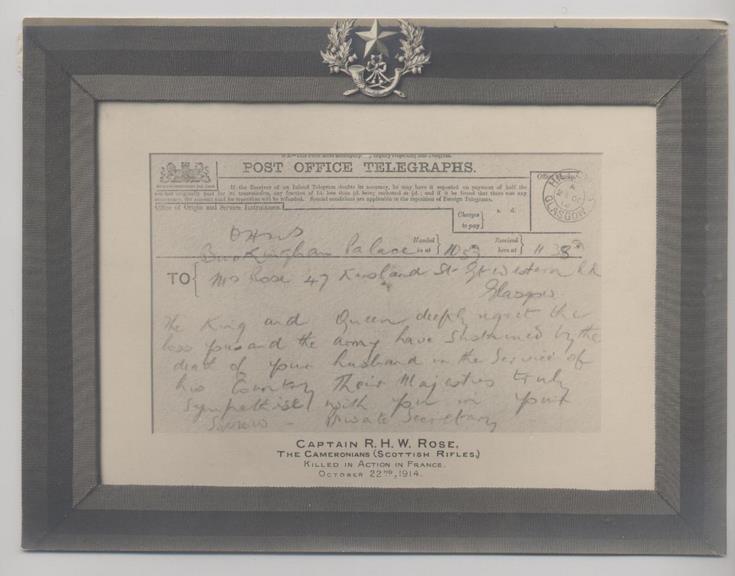 POST OFFICE TELEGRAPHS.
If the Receiver of an Inland Telegram doubts its accuracy, he may have it repeated on payment of half the
amount originally paid for its transmission, any fraction of 1d. less than ½d. being reckoned as ½d.; and if it be found that there was any
inaccuracy, the amount paid for repetition will be refunded. Special conditions are applicable to the repetition of Foreign Telegrams.
Office of Origin and Service Instructions.
Charges to pay
s. d.
GLASGOW
OHMS
Buckingham Palace
Handed in at
Received here at
TO
Mrs Rose 47 Kersland St Gt Western Rd
Glasgow
The King and Queen deeply regret the
loss you and the army have sustained by the
deat of your husband in the Service of
his Country Their Majesties truly
Sympathise with you in your
Sorrow - Private Secretary
CAPTAIN R.H.W. ROSE,
THE CAMERONIANS (SCOTTISH RIFLES,)
KILLED IN ACTION IN FRANCE.
OCTOBER 22ND, 1914.